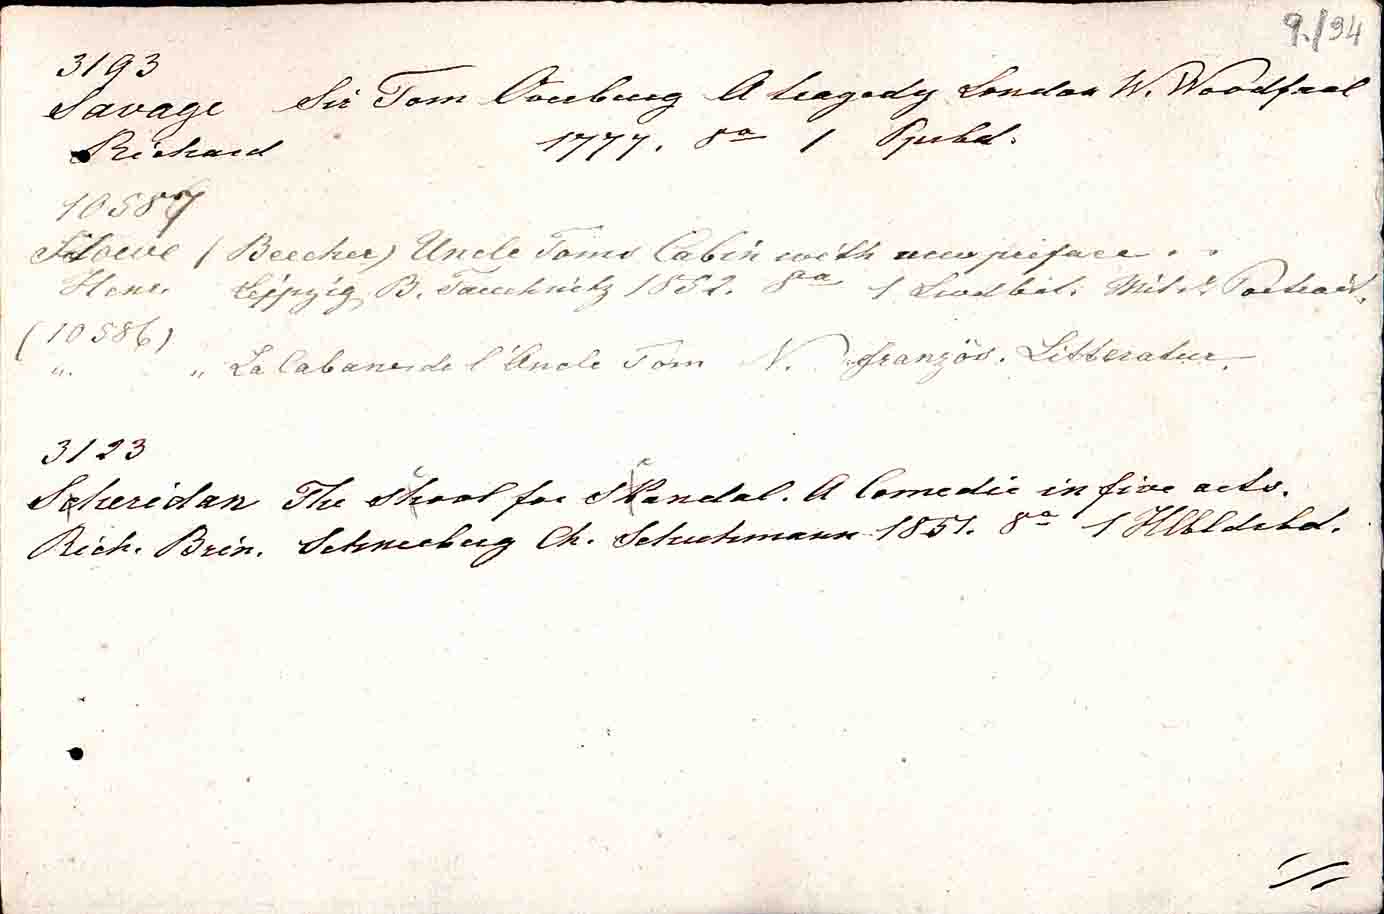 9./94
3193
Savage Sir Tom Overburg A tragedy London W. Woodfaal
Richard 1777. 8° 1 Ppbd.
10587
Stowe (Beecher) Uncle Toms Cabin with new preface . .
Henr. Leipzig B. Tauchnitz 1852. 8° 1 Portrait.
(10586)
" " La Cabane de l'Uncle Tom N. französ. Litteratur.
3123
Scheridan The for A Comedie in five acts.
Rich. Brin. Schneeberg Ch. Schuhmann 1851. 8° 1 Hlbldrbd.